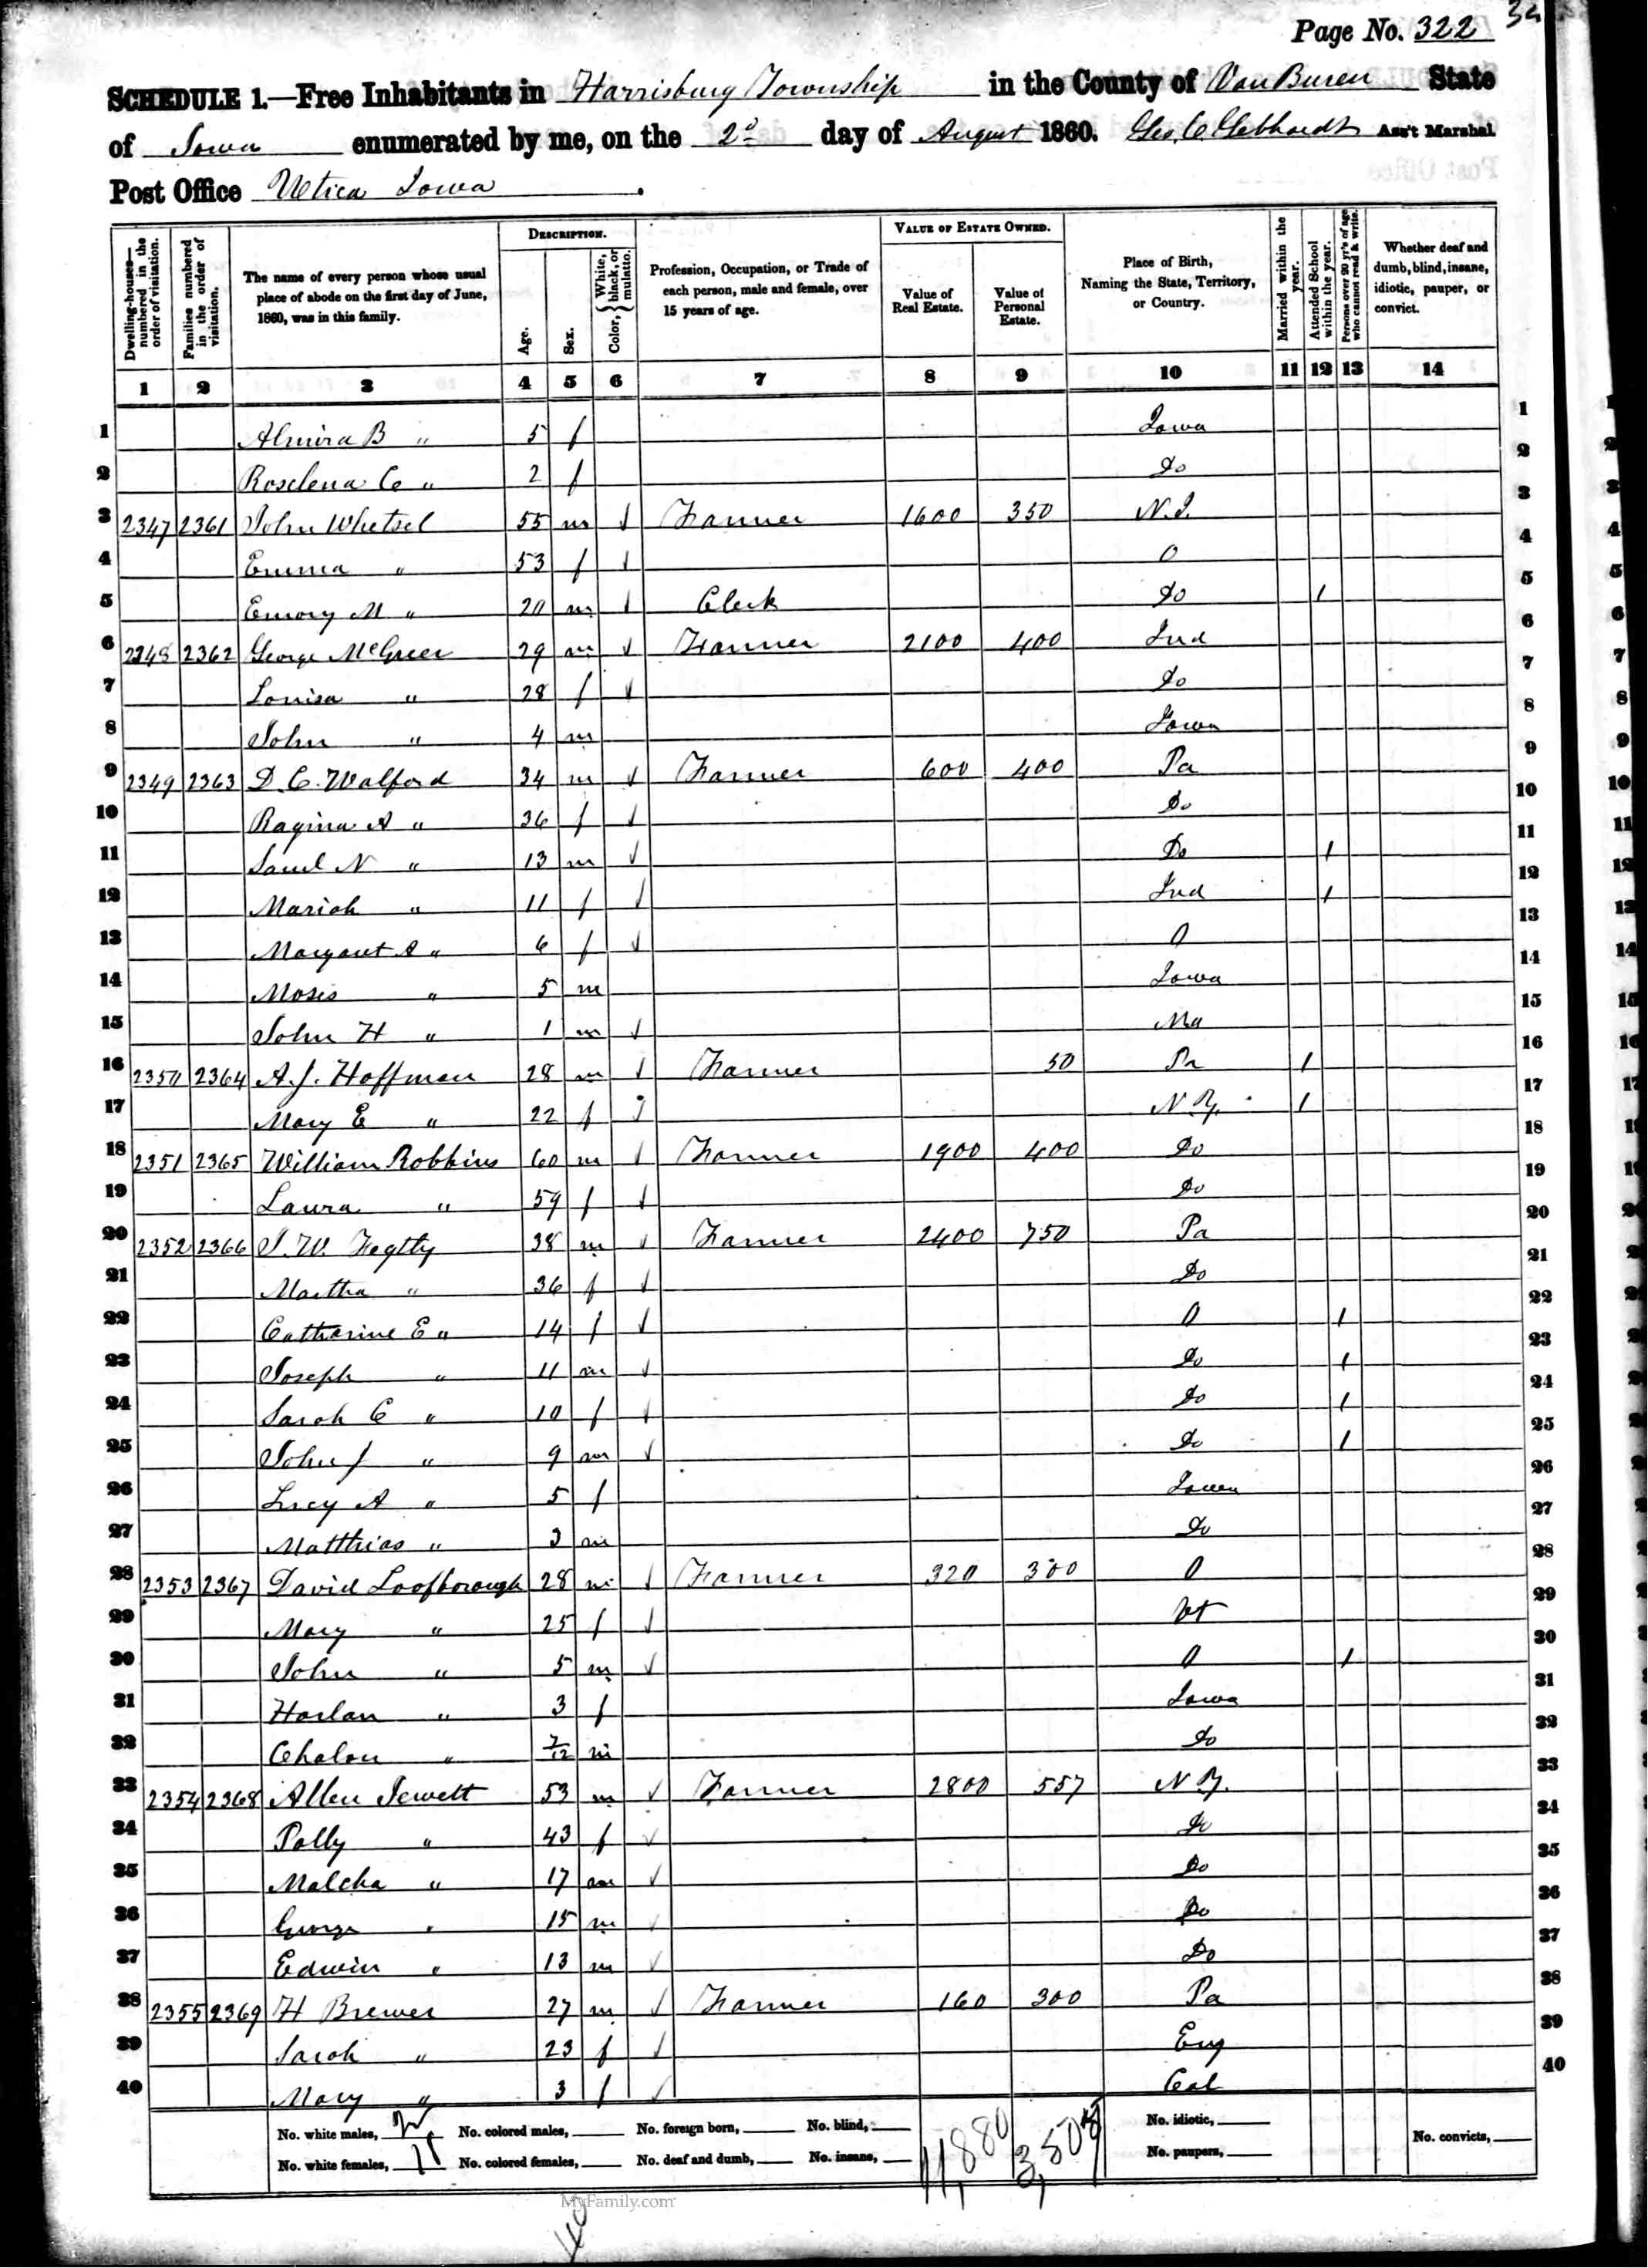 Page No. 322
SCHEDULE 1.—Free Inhabitants in Harrisburg Township in the County of Van Buren State
of Iowa enumerated by me, on the 2d day of August 1860. Geo. C. Gebhardt Ass't Marshal
Post Office Utica Iowa
Dwelling-houses—numbered in the order of visitation.
Families numbered in the order of visitation.
The name of every person whose usual place of abode on the first day of June, 1860, was in this family.
DESCRIPTION.
Age.
Sex.
Color, { White, black, or mulatto.
Profession, Occupation, or Trade of each person, male and female, over 15 years of age.
VALUE OF ESTATE OWNED.
Value of Real Estate.
Value of Personal Estate.
Place of Birth, Naming the State, Territory, or Country.
Married within the year.
Attended School within the year.
Persons over 20 yr's of age who cannot read & write.
Whether deaf and dumb, blind, insane, idiotic, pauper, or convict.
1 2 3 4 5 6 7 8 9 10 11 12 13 14
1 Almira B " 5 f Iowa 1
2 Roselena C " 2 f Do 2
3 2347 2361 John Whetsel 55 m Farmer 1600 350 N.J. 3
4 Emma " 53 f O 4
5 Emory M " 20 m Clerk Do 1 5
6 2348 2362 George McGreer 29 m Farmer 2100 400 Ind 6
7 Louisa " 28 f Do 7
8 John " 4 m Iowa 8
9 2349 2363 D. C. Walford 34 m Farmer 600 400 Pa 9
10 Ragina A " 36 f Do 10
11 Saml N " 13 m Do 1 11
12 Mariah " 11 f Ind 1 12
13 Margaret A " 6 f O 13
14 Moses " 5 m Iowa 14
15 John H " 1 m Mo 15
16 2350 2364 A. J. Hoffman 28 m Farmer 50 Pa 1 16
17 Mary E " 22 f N Y. 1 17
18 2351 2365 William Robbins 60 m Farmer 1900 400 Do 18
19 Laura " 59 f Do 19
20 2352 2366 J. W. Fegtly 38 m Farmer 2400 750 Pa 20
21 Martha " 36 f Do 21
22 Catharine E " 14 f O 1 22
23 Joseph " 11 m Do 1 23
24 Sarah C " 10 f Do 1 24
25 John J " 9 m Do 1 25
26 Lucy A " 5 f Iowa 26
27 Matthias " 3 m Do 27
28 2353 2367 David Loofborough 28 m Farmer 320 300 O 28
29 Mary " 25 f Vt 29
30 John " 5 m O 1 30
31 Harlan " 3 f Iowa 31
32 Chalon " 7/12 m Do 32
33 2354 2368 Allen Jewett 53 m Farmer 2800 557 N Y. 33
34 Polly " 43 f Do 34
35 Malcha " 17 m Do 35
36 George " 15 m Do 36
37 Edwin " 13 m Do 37
38 2355 2369 H Brewer 27 m Farmer 160 300 Pa 38
39 Sarah " 23 f Eng 39
40 Mary " 3 f Cal 40
No. white males, No. colored males, No. foreign born, No. blind, No. idiotic,
No. white females, No. colored females, No. deaf and dumb, No. insane, No. paupers, No. convicts,
11,880
MyFamily.com
40